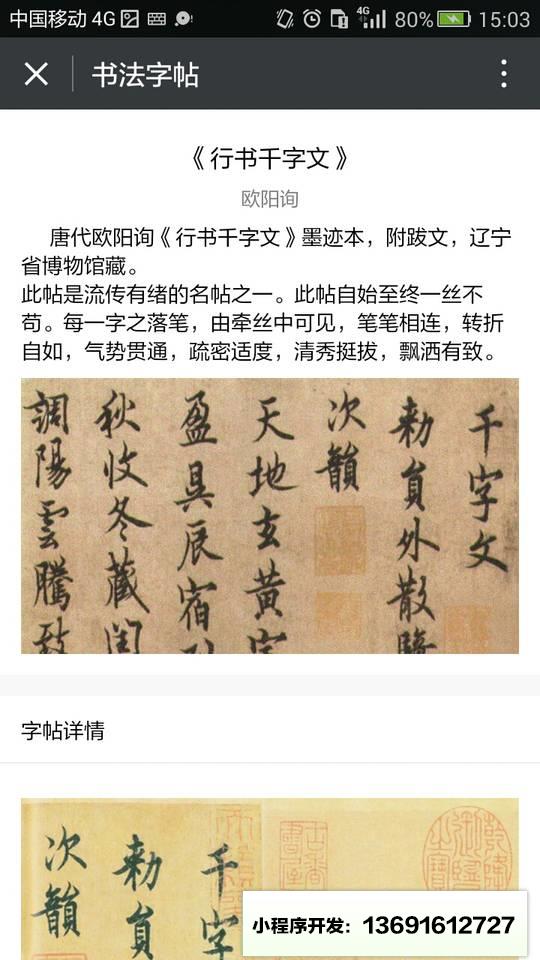 中国移动 4G
4G
80%
15:03
书法字帖
《行书千字文》
欧阳询
唐代欧阳询《行书千字文》墨迹本，附跋文，辽宁
省博物馆藏。
此帖是流传有绪的名帖之一。此帖自始至终一丝不
苟。每一字之落笔，由牵丝中可见，笔笔相连，转折
自如，气势贯通，疏密适度，清秀挺拔，飘洒有致。
千字文
勅員外散騎
次韻
天地玄黄宇
盈昃辰宿列
秋收冬藏閏
調陽雲騰致
字帖详情
千字
勅員
次韻
小程序开发：13691612727